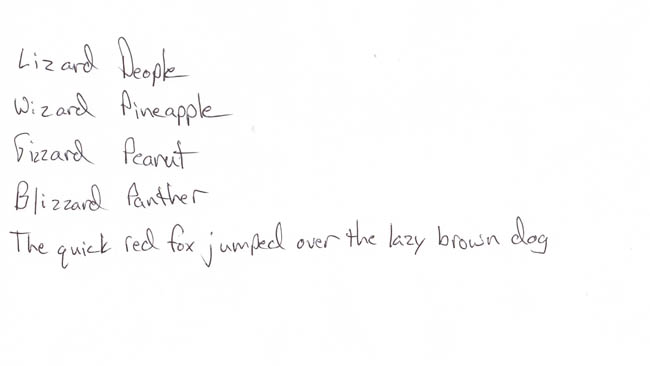 Lizard People
Wizard Pineapple
Gizzard Peanut
Blizzard Panther
The quick red fox jumped over the lazy brown dog